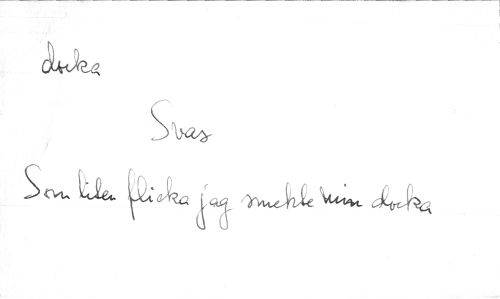 docka
Svas
Som liten flicka jag smekte min docka